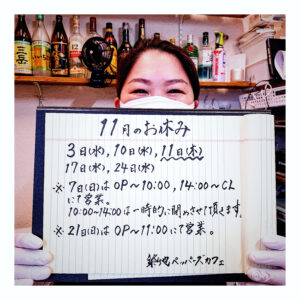 11月のお休み
3日(水), 10日(水), 11日(木)
17日(水), 24日(水)
※ 7日(日)は OP〜10:00, 14:00〜CL
にて営業。
10:00〜14:00は一時的に閉めさせて頂きます。
※ 21日(日)は OP〜11:00 にて営業。
ペッパーズカフェ